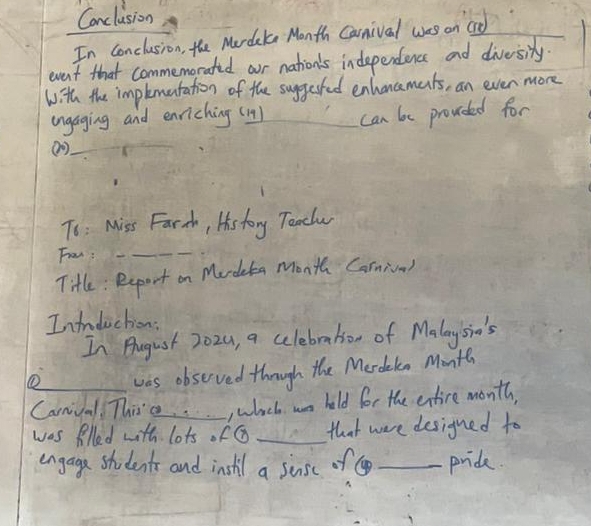 Conclusion
In Conclusion, the Merdeka Month Carnival was an (18) ______
event that commemorated our nation's independence and diversity.
With the implementation of the suggested enhancements, an even more
engaging and enriching (19) ______ can be provided for
(20) ______
To: Miss Farah, History Teacher
From: -----
Title: Report on Merdeka Month Carnival
Introduction:
In August 2024, a celebration of Malaysia's
① ______ was observed through the Merdeka Month
Carnival. This ② ....., which was held for the entire month,
was filled with lots of ③ ______ that were designed to
engage students and instil a sense of ④ ______ pride.